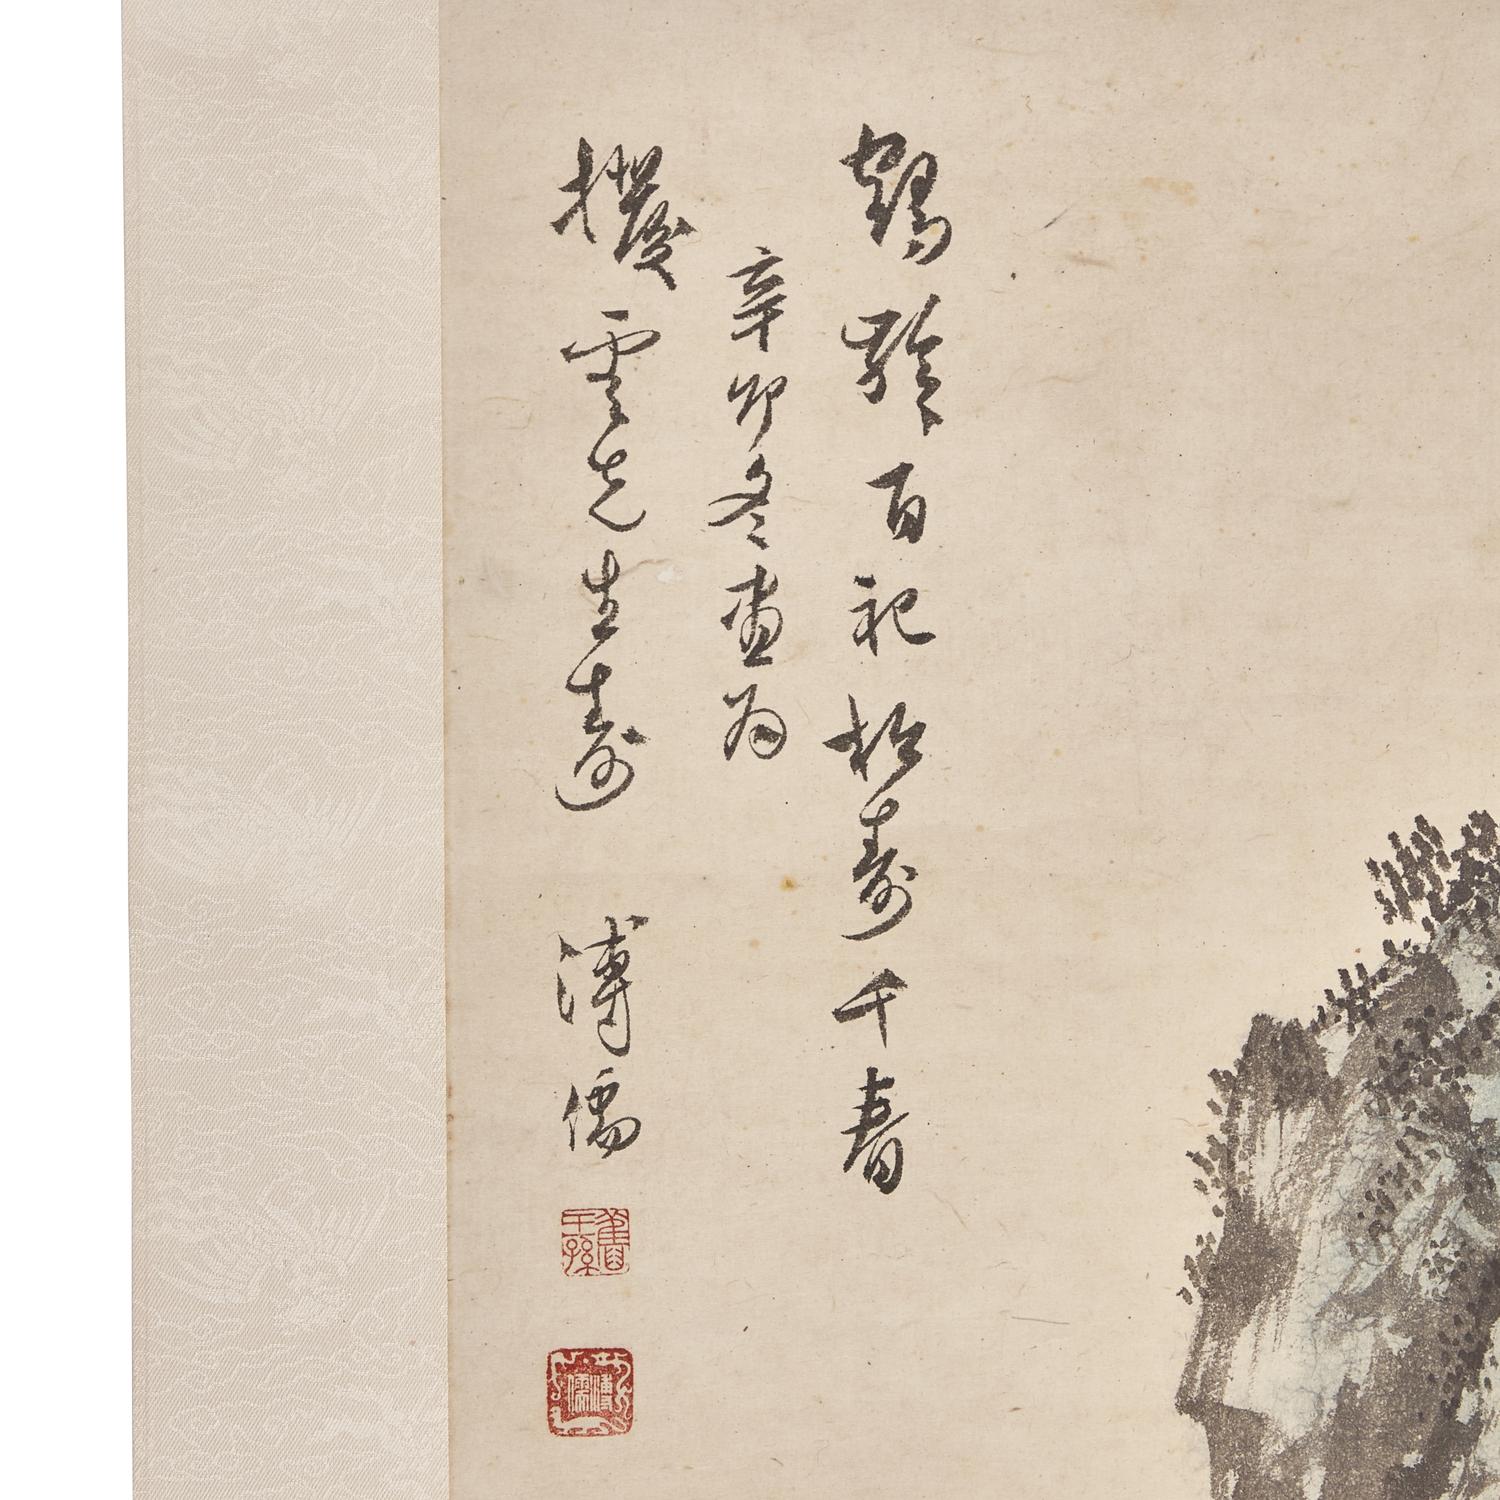 鶴齡百祀松壽千春
辛卯冬畫為
撥雲先生壽 溥儒
舊王孫
溥儒